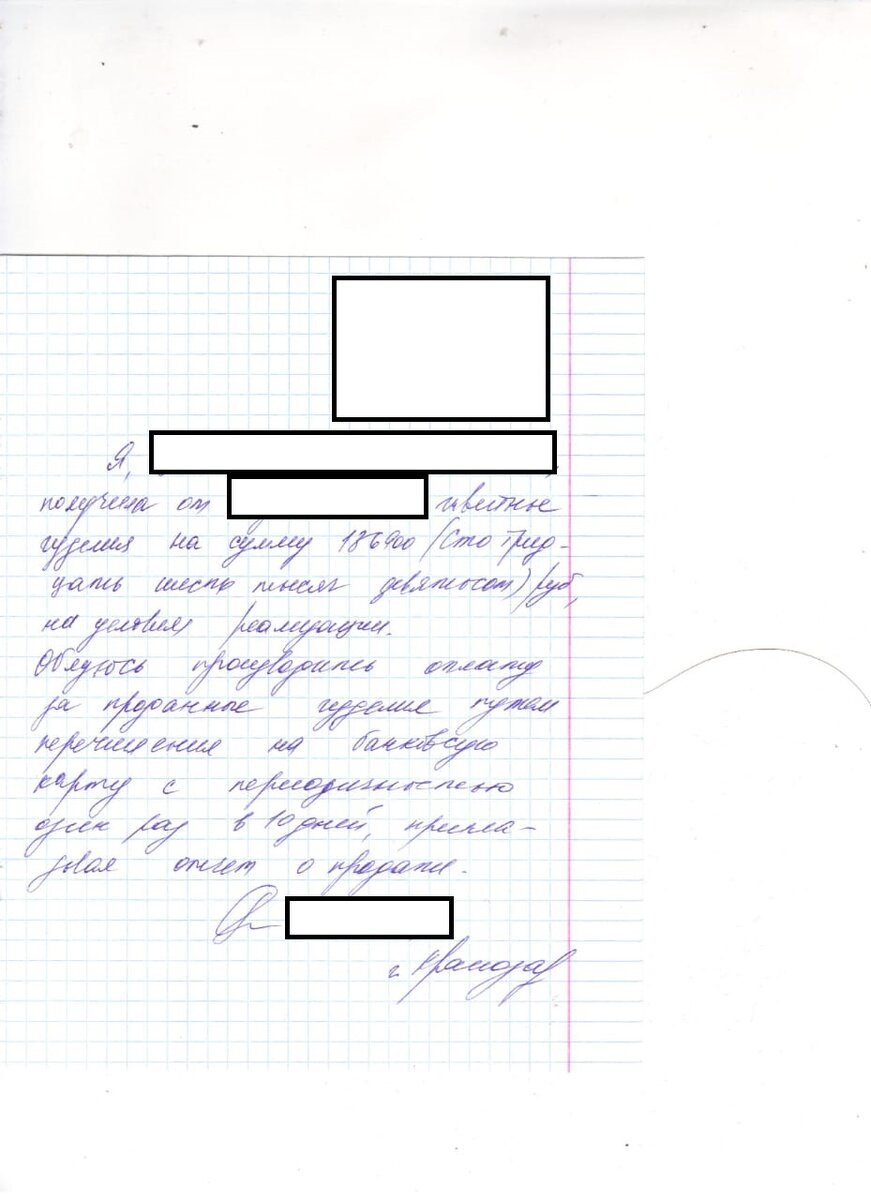 Я,
получила от
изделия на сумму 136900 (Сто трид-
цать шесть тысяч девятьсот) руб,
на условии реализации.
Обязуюсь производить оплату
за проданные изделия путем
перечисления на банковскую
карту с периодичностью
один раз в 10 дней,
отчет о продаже.
г. Краснодар